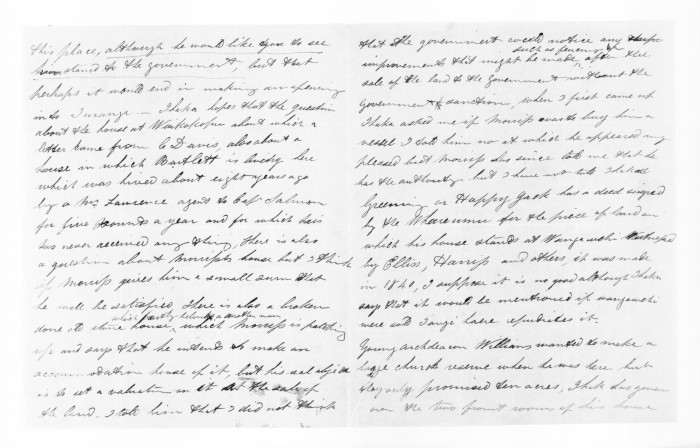 this place, although he would like you to see
him stand to the government, but that
perhaps it would end in making an opening
into Turanga — Ihaka hopes that the question
about the house at about which a
letter came from C Davis, also about a
house in which Bartlett is living here
which was hired about eight years ago
by a Mr Lawrence agent to Capt Salmon
for five pounds a year and for which he
has never received any thing, there is also
a question about Morriss's house but I think
if Morriss gives him a small sum that
he will be satisfied, There is also a broken
down old stone house, which partly belongs to another man, which Morriss is patching
up and says that he intends to make an
accommodation house of it, but his sole object
is to set a valuation on it at the sale of
the land. I told him that I did not think
that the government would notice any
improvements that might be made, such as fencing &c after the
sale of the land to the Government without the
Government's sanction, when I first came up
Ihaka asked me if Morriss was to buy him a
vessel I told him no at which he appeared
pleased but Morriss has since told me that he
has the authority but I have not told Ihaka.
Greening or Happy Jack has a deed signed
by the Wharewini for the piece of land on
which his house stands at Wangawehi witnessed
by Elliss, Harriss and others, it was made
in 1840, I suppose it is no good although Ihaka
says that it would be mentioned if wangawehi
were sold Tangi haere repudiates it.
Young archdeacon Williams wanted to make a
large church reserve when he was here but
they only promised ten acres, Ihaka has given
over the two front rooms of his house